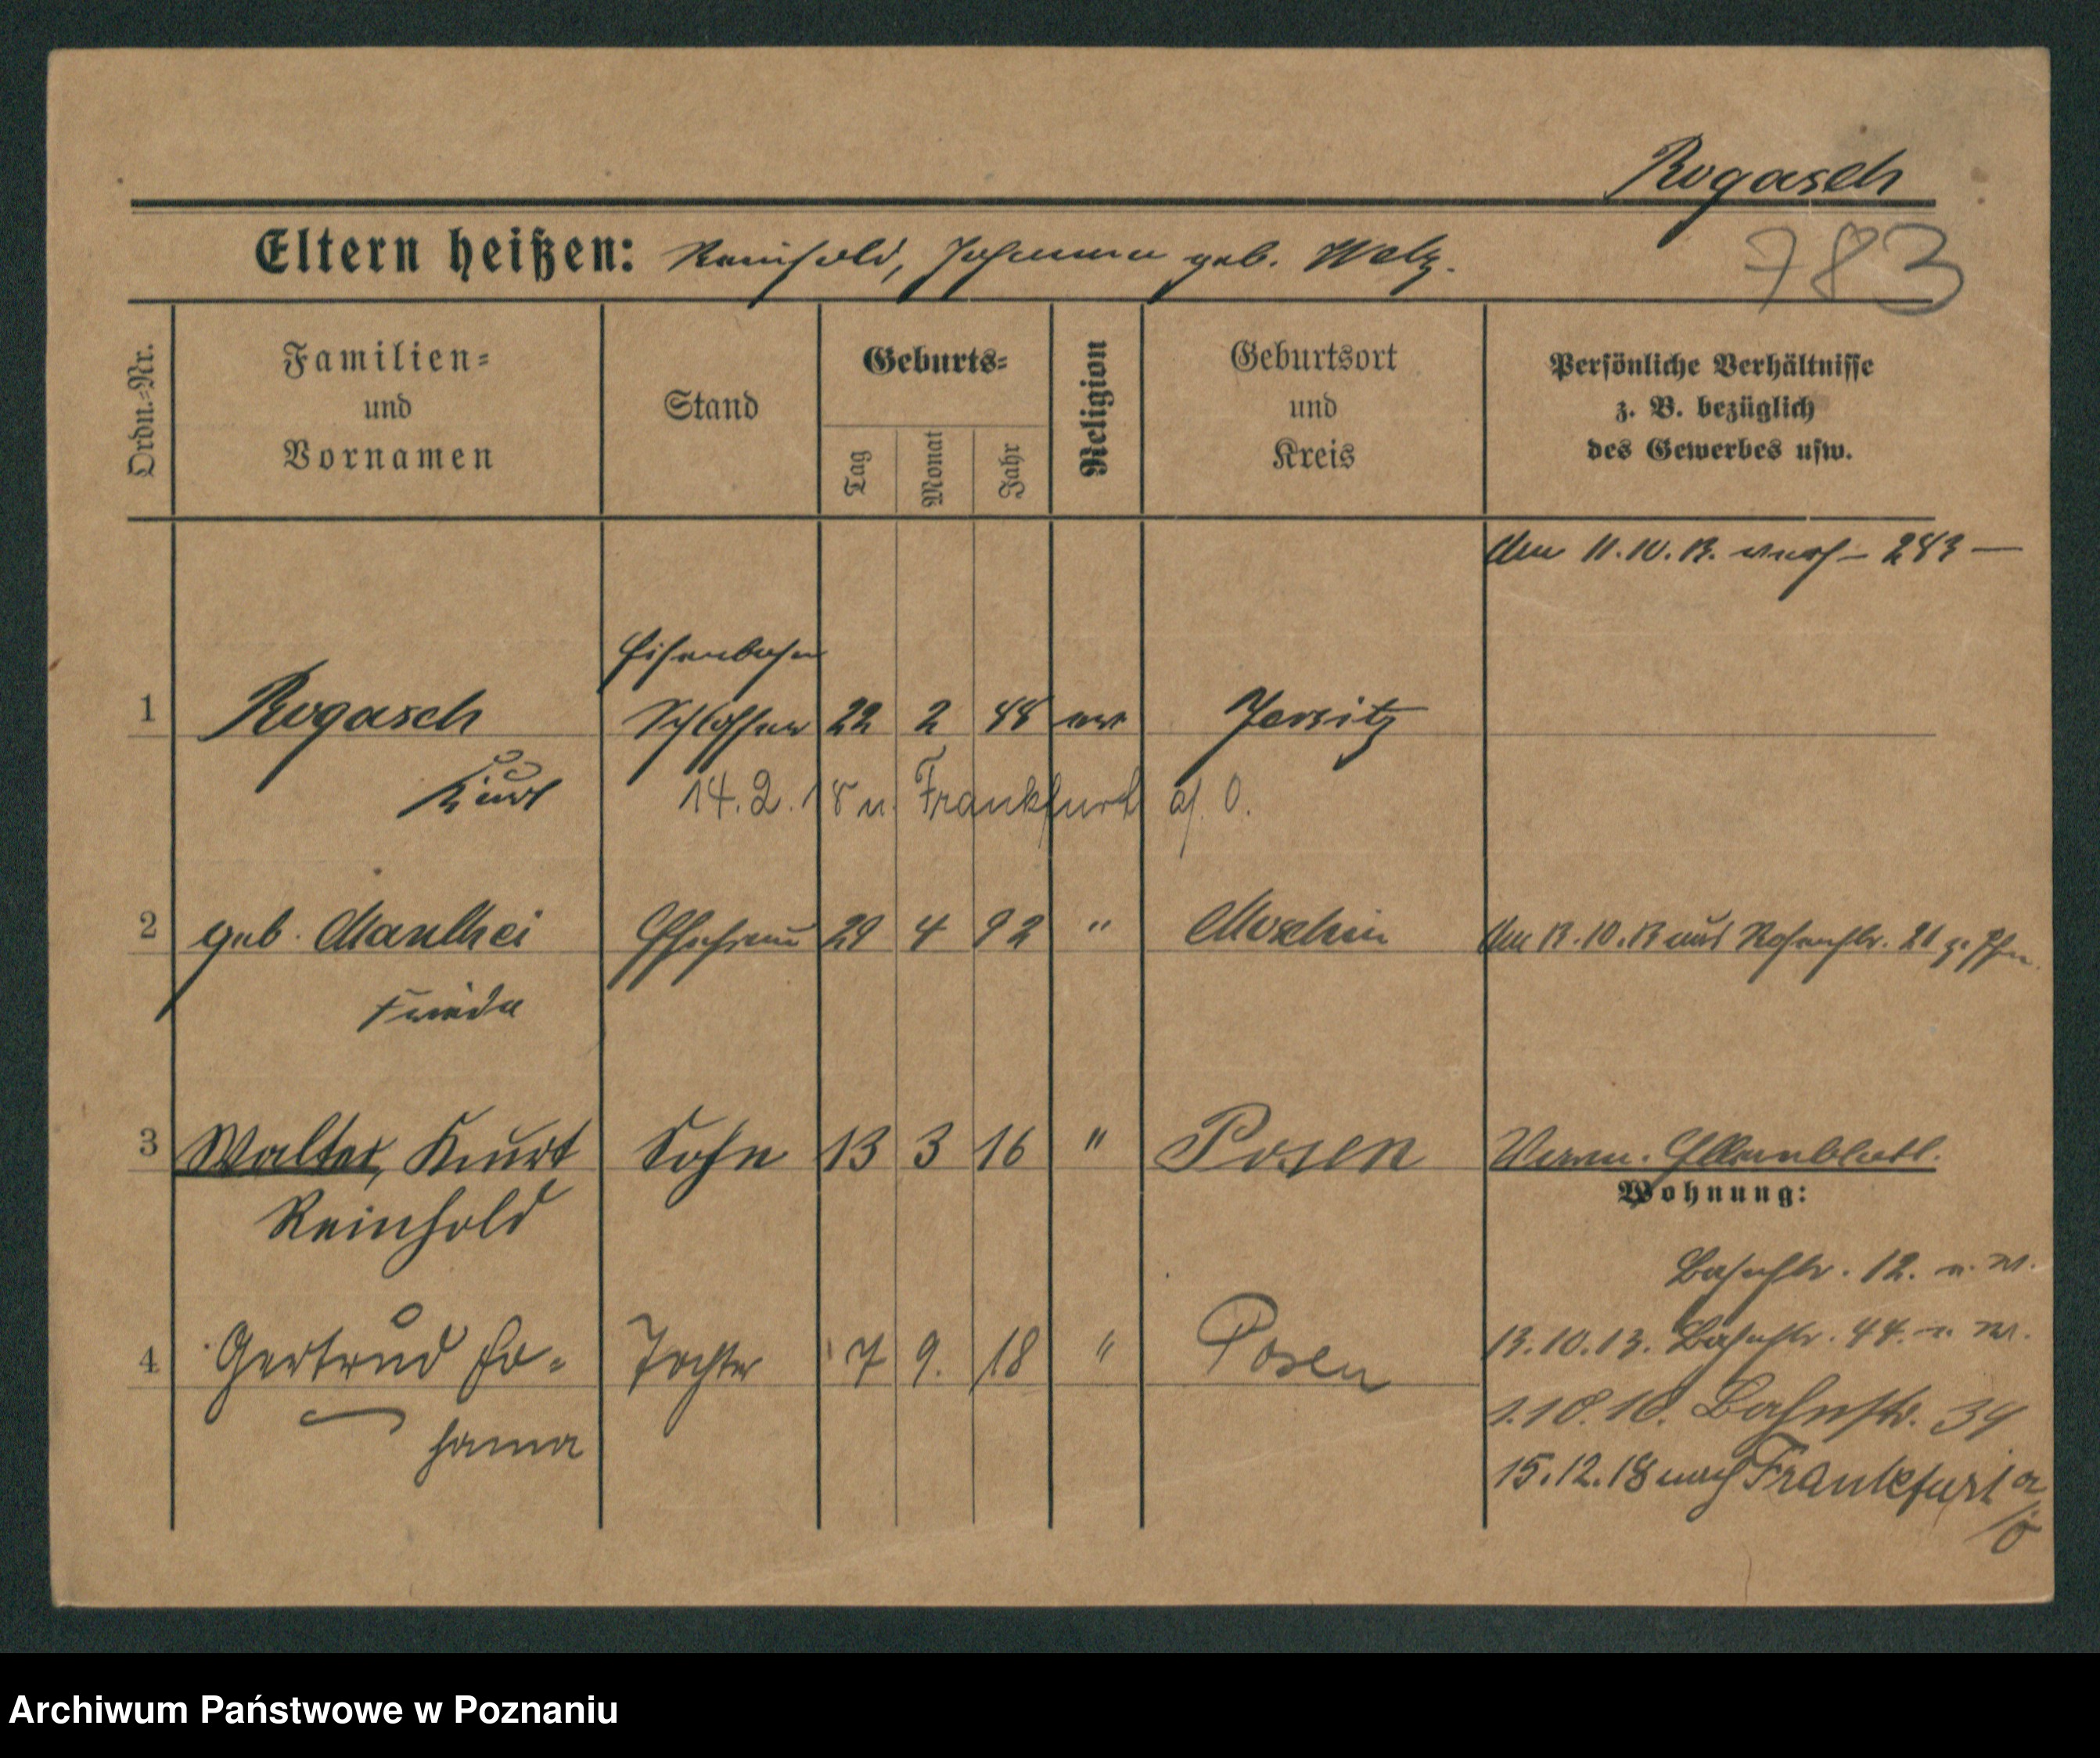 Rogasch
Eltern heißen: Reinhold, Johanna geb. Welz.
783
Ordn.-Nr.
Familien-
und
Vornamen
Stand
Geburts-
Tag
Monat
Jahr
Religion
Geburtsort
und
Kreis
Persönliche Verhältnisse
z. B. bezüglich
des Gewerbes usw.
11.10.13.
Eisenbahn
1 Rogasch Schlosser 22 2 88 ev Jersitz
Kurt 14.2.18 n. Frankfurt a/. O.
2 geb. Ehefrau 29 4 92 " Moschin 13.10.13 aus 21
Frieda
3 Walter, Kurt Sohn 13 3 16 " Posen
Reinhold
Wohnung:
Bahnstr. 12.
4 Gertrud Jo- Tochter 7 9. 18 " Posen
hanna
13.10.13. Bahnstr. 44.
1.10.16. Bahnstr. 39
15.12.18 nach Frankfurt a
/O
Archiwum Państwowe w Poznaniu